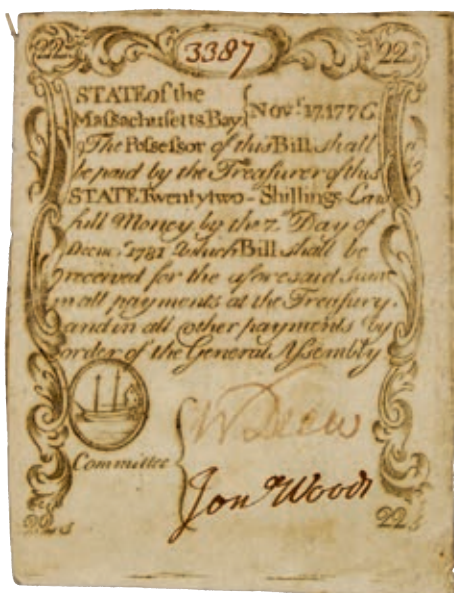 22 3387 22
STATE of the
Massachusetts Bay { Novr. 17. 1776
The Possessor of this Bill shall
be paid by the Treasurer of this
STATE Twenty two - Shillings Law
full Money by the 7th Day of
Decmr. 1781 Which Bill shall be
received for the aforesaid Sum
in all payments at the Treasury.
and in all other payments by
order of the General Assembly
Committee
Jona Woods
22s 22s